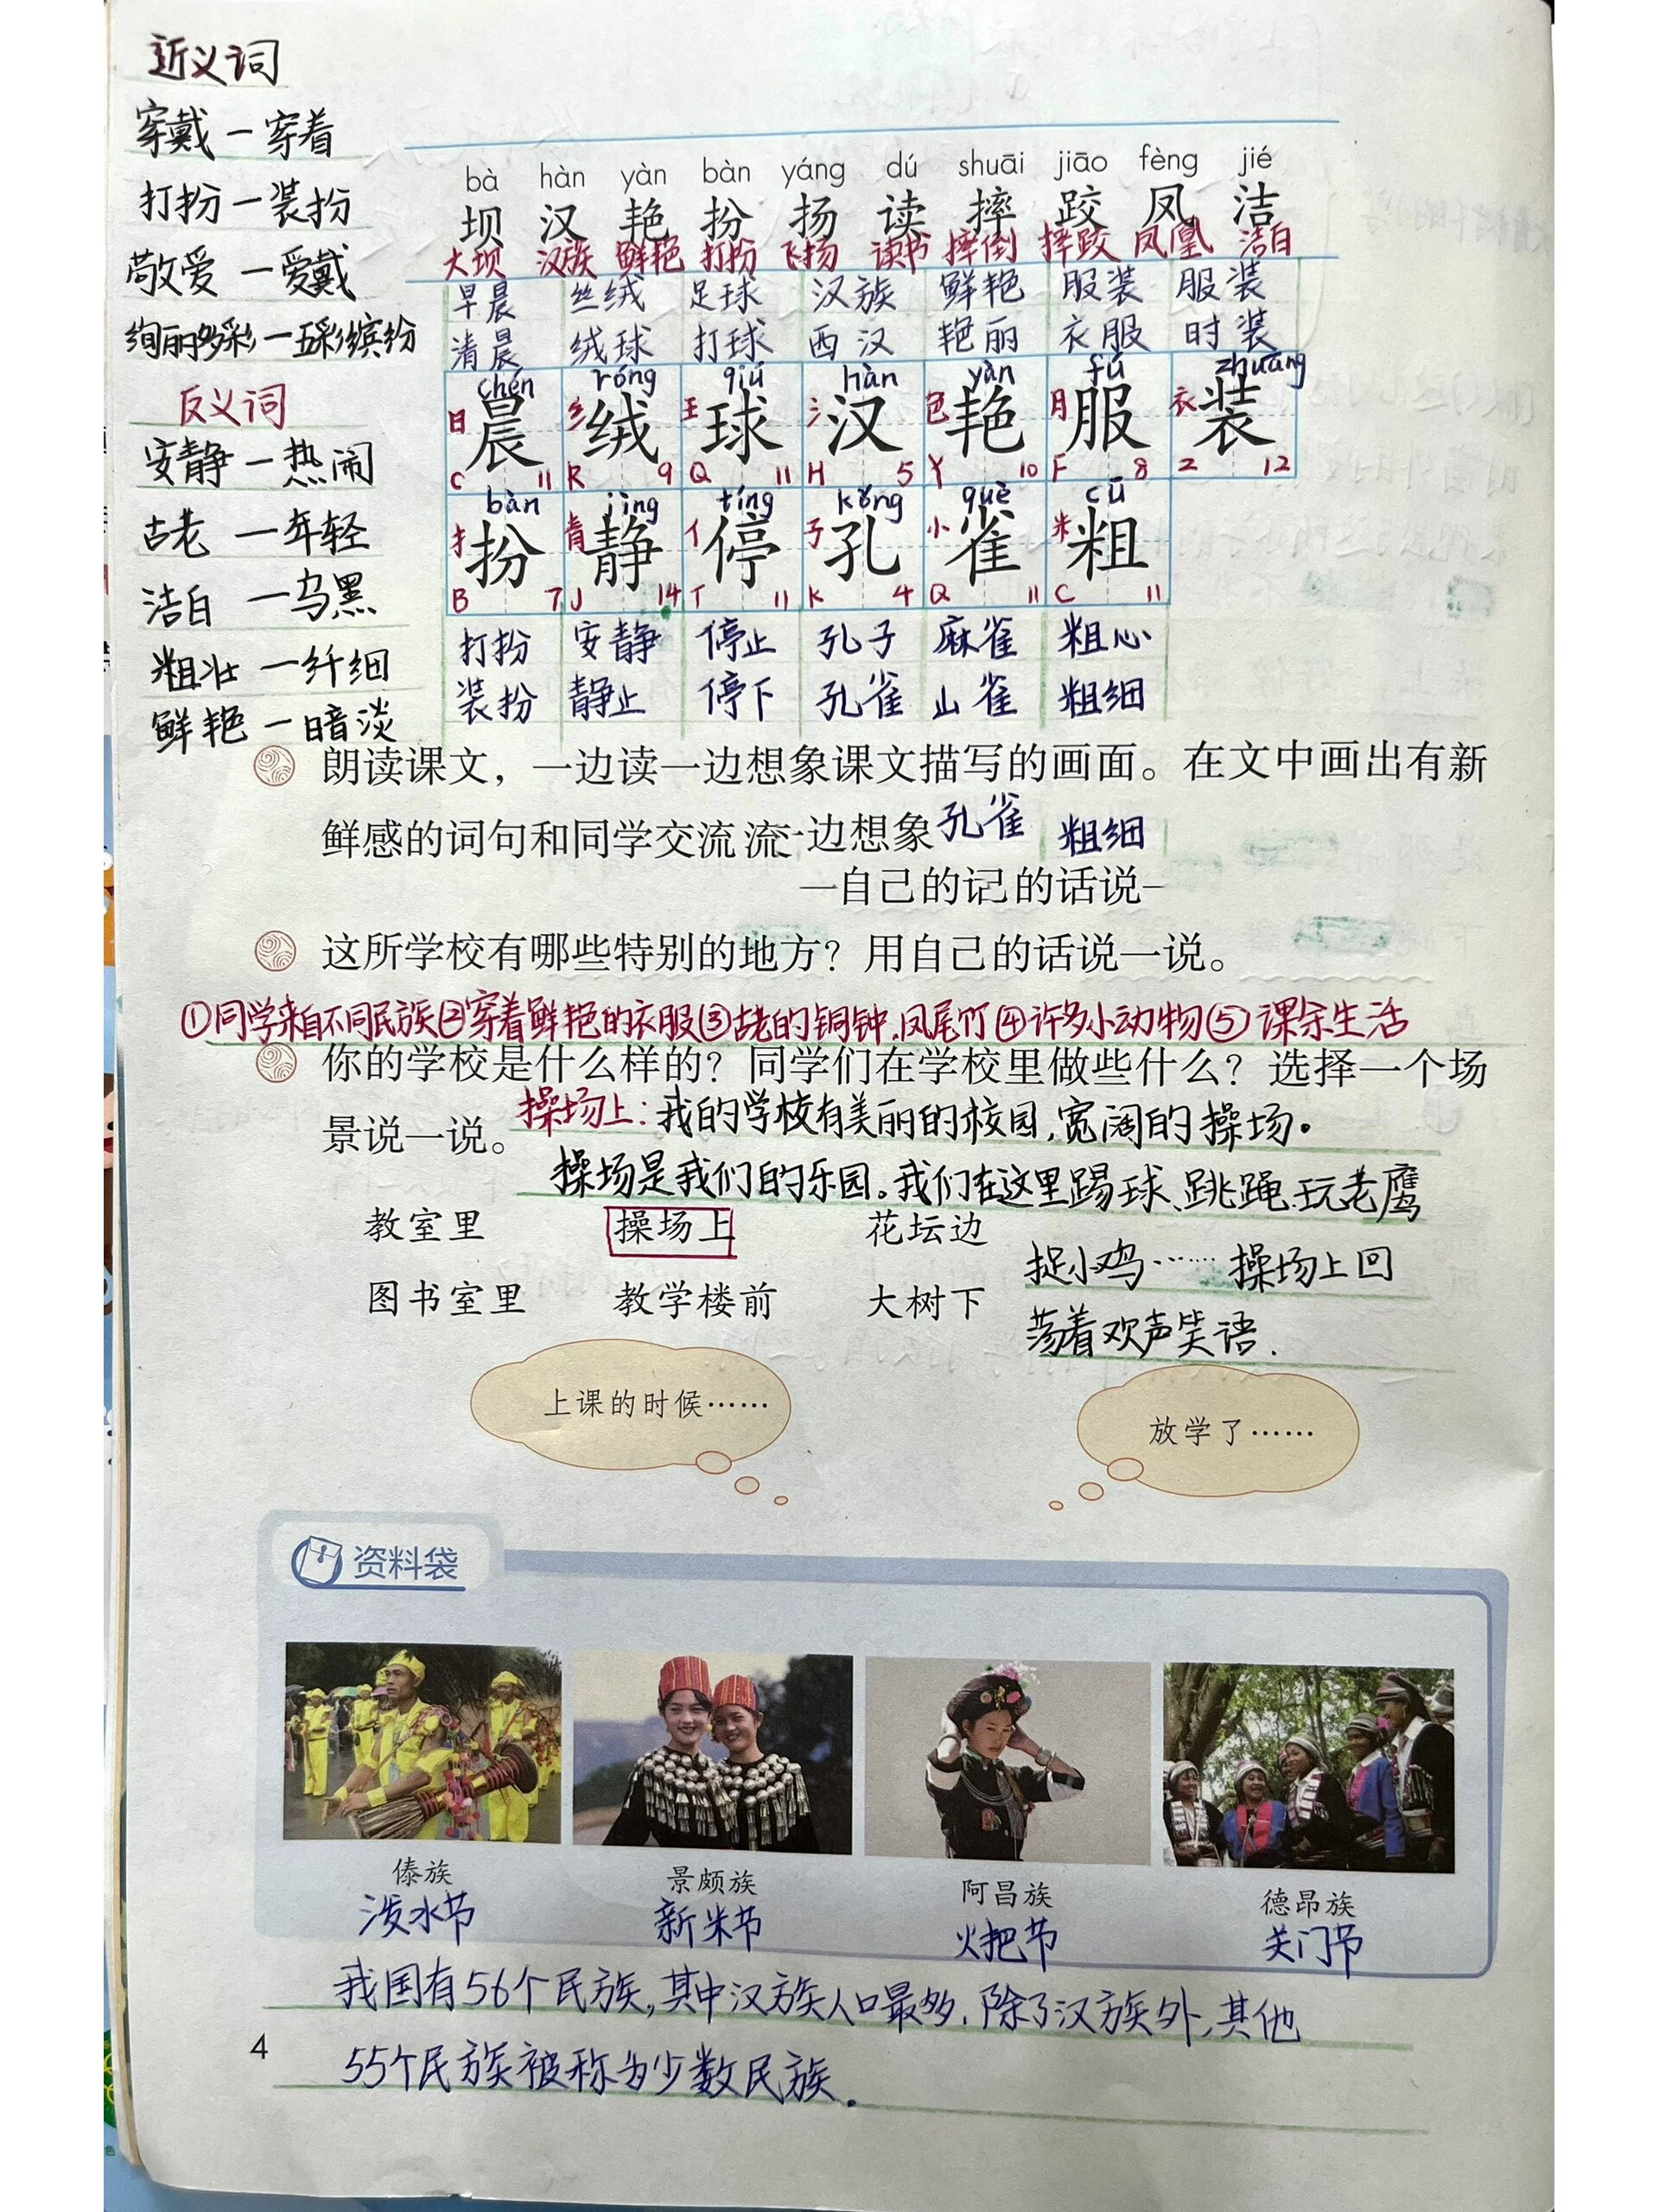 近义词
穿戴—穿着
打扮—装扮
敬爱—爱戴
绚丽多彩—五彩缤纷
反义词
安静—热闹
古老—年轻
洁白—乌黑
粗壮—纤细
鲜艳—暗淡
bà hàn yàn bàn yáng dú shuāi jiāo fèng jié
坝 汉 艳 扮 扬 读 摔 跤 凤 洁
大坝 汉族 鲜艳 打扮 飞扬 读书 摔倒 摔跤 凤凰 洁白
早晨 丝绒 足球 汉族 鲜艳 服装 服装
清晨 绒球 打球 西汉 艳丽 衣服 时装
chén róng qiú hàn yàn fú zhuāng
日 晨 纟 绒 王 球 氵 汉 色 艳 月 服 衣 装
C 11 R 9 Q 11 H 5 Y 10 F 8 Z 12
bàn jìng tíng kǒng què cū
扌 扮 青 静 亻 停 子 孔 小 雀 米 粗
B 7 J 14 T 11 K 4 Q 11 C 11
打扮 安静 停止 孔子 麻雀 粗心
装扮 静止 停下 孔雀 山雀 粗细
朗读课文，一边读一边想象课文描写的画面。在文中画出有新
鲜感的词句和同学交流 流一边想象 孔雀 粗细
一自己的记的话说一
这所学校有哪些特别的地方？用自己的话说一说。
①同学来自不同民族②穿着鲜艳的衣服③古老的铜钟、凤尾竹④许多小动物⑤课余生活
你的学校是什么样的？同学们在学校里做些什么？选择一个场
景说一说。 操场上：我的学校有美丽的校园，宽阔的操场。
操场是我们的乐园。我们在这里踢球、跳绳、玩老鹰
教室里 操场上 花坛边
捉小鸡…… 操场上回
图书室里 教学楼前 大树下
荡着欢声笑语.
上课的时候……
放学了……
资料袋
傣族 景颇族 阿昌族 德昂族
泼水节 新米节 火把节 关门节
我国有56个民族，其中汉族人口最多，除了汉族外，其他
4
55个民族被称为少数民族.